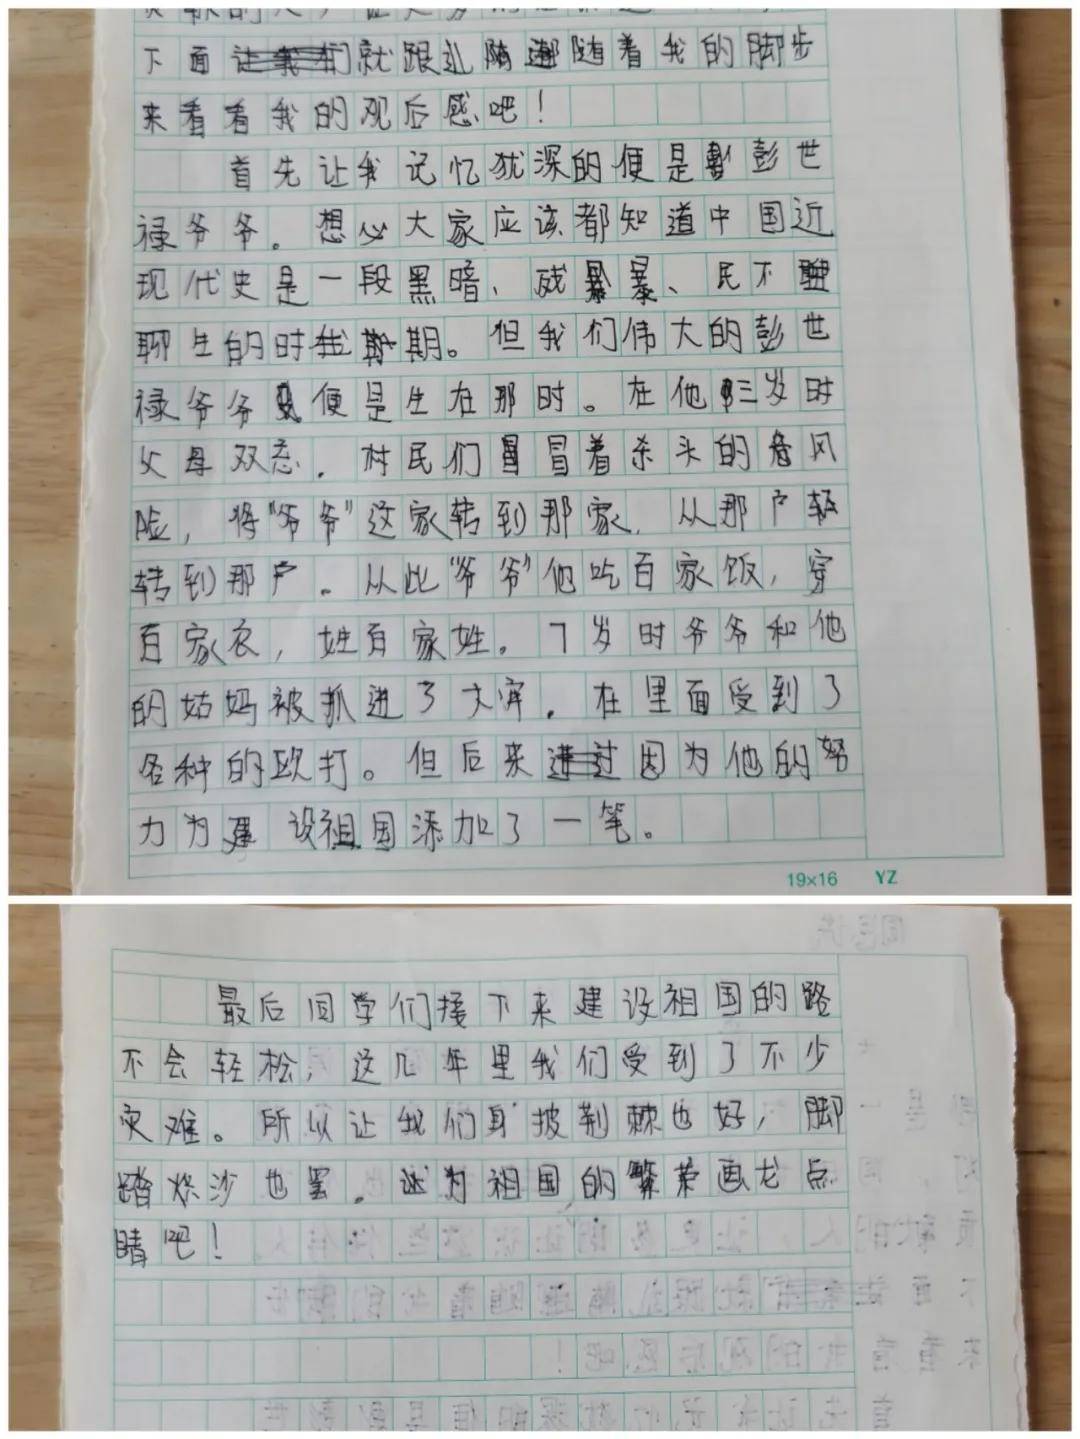 下面就跟随着我的脚步
来看看我的观后感吧！
首先让我记忆犹深的便是彭世
禄爷爷。想必大家应该都知道中国近
现代史是一段黑暗、残暴、民不
聊生的时期。但我们伟大的彭世
禄爷爷便是生在那时。在他三岁时
父母双忘，村民们冒着杀头的风
险，将“爷爷”这家转到那家，从那户
转到那户。从此“爷爷”他吃百家饭，穿
百家衣，姓百家姓。7岁时爷爷和他
的姑妈被抓进了大牢，在里面受到了
各种的殴打。但后来因为他的努
力为建设祖国添加了一笔。
19×16 YZ
最后同学们接下来建设祖国的路
不会轻松，这几年里我们受到了不少
灾难。所以让我们身披荆棘也好，脚
踏烁沙也罢。为祖国的繁荣画龙点
睛吧！